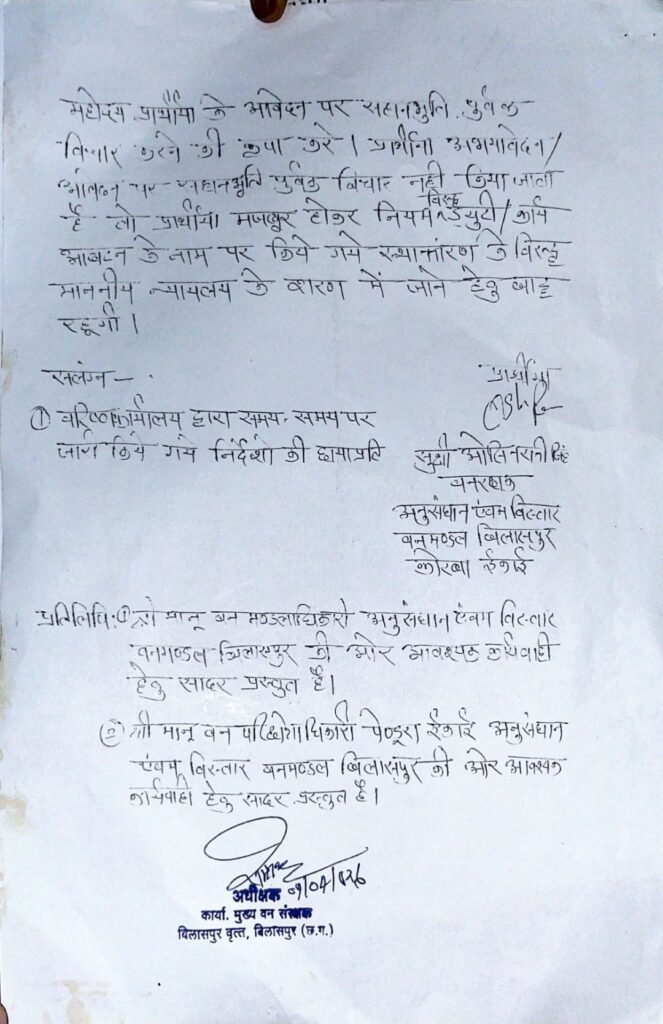 महोदय प्रार्थीया के आवेदन पर सहानभुति पुर्वक
विचार करने की कृपा करे । प्रार्थीया अभ्यावेदन/
आवेदन पर सहानभुति पुर्वक विचार नही किया जाता
है तो प्रार्थीया मजबुर होकर नियम विरूद्ध ड्युटी/कार्य
आबंटन के नाम पर किये गये स्थानांतरण के विरूद्ध
माननीय न्यायलय के शरण में जाने हेतु बाध्य
रहूगी ।
सलंग्न –
प्रार्थीया
① वरिष्ठ कार्यालय द्वारा समय-समय पर
जारी किये गये निर्देशो की छायाप्रति
सुश्री सिंह
वनरक्षक
अनुसंधान एंवम विस्तार
वनमण्डल बिलासपुर
कोरबा ईकाई
प्रतिलिपि:① श्री मान् वन मण्डलाधिकारी अनुसंधान एंवम विस्तार
वनमण्डल बिलासपुर की ओर आवश्यक कार्यवाही
हेतु सादर प्रस्तुत है।
② श्री मान् वन परिक्षेत्राधिकारी पेण्ड्रा ईकाई अनुसंधान
एंवम विस्तार वनमण्डल बिलासपुर की ओर आवश्यक
कार्यवाही हेतु सादर प्रस्तुत है।
अधीक्षक
कार्या. मुख्य वन संरक्षक
बिलासपुर वृत्त, बिलासपुर (छ.ग.)